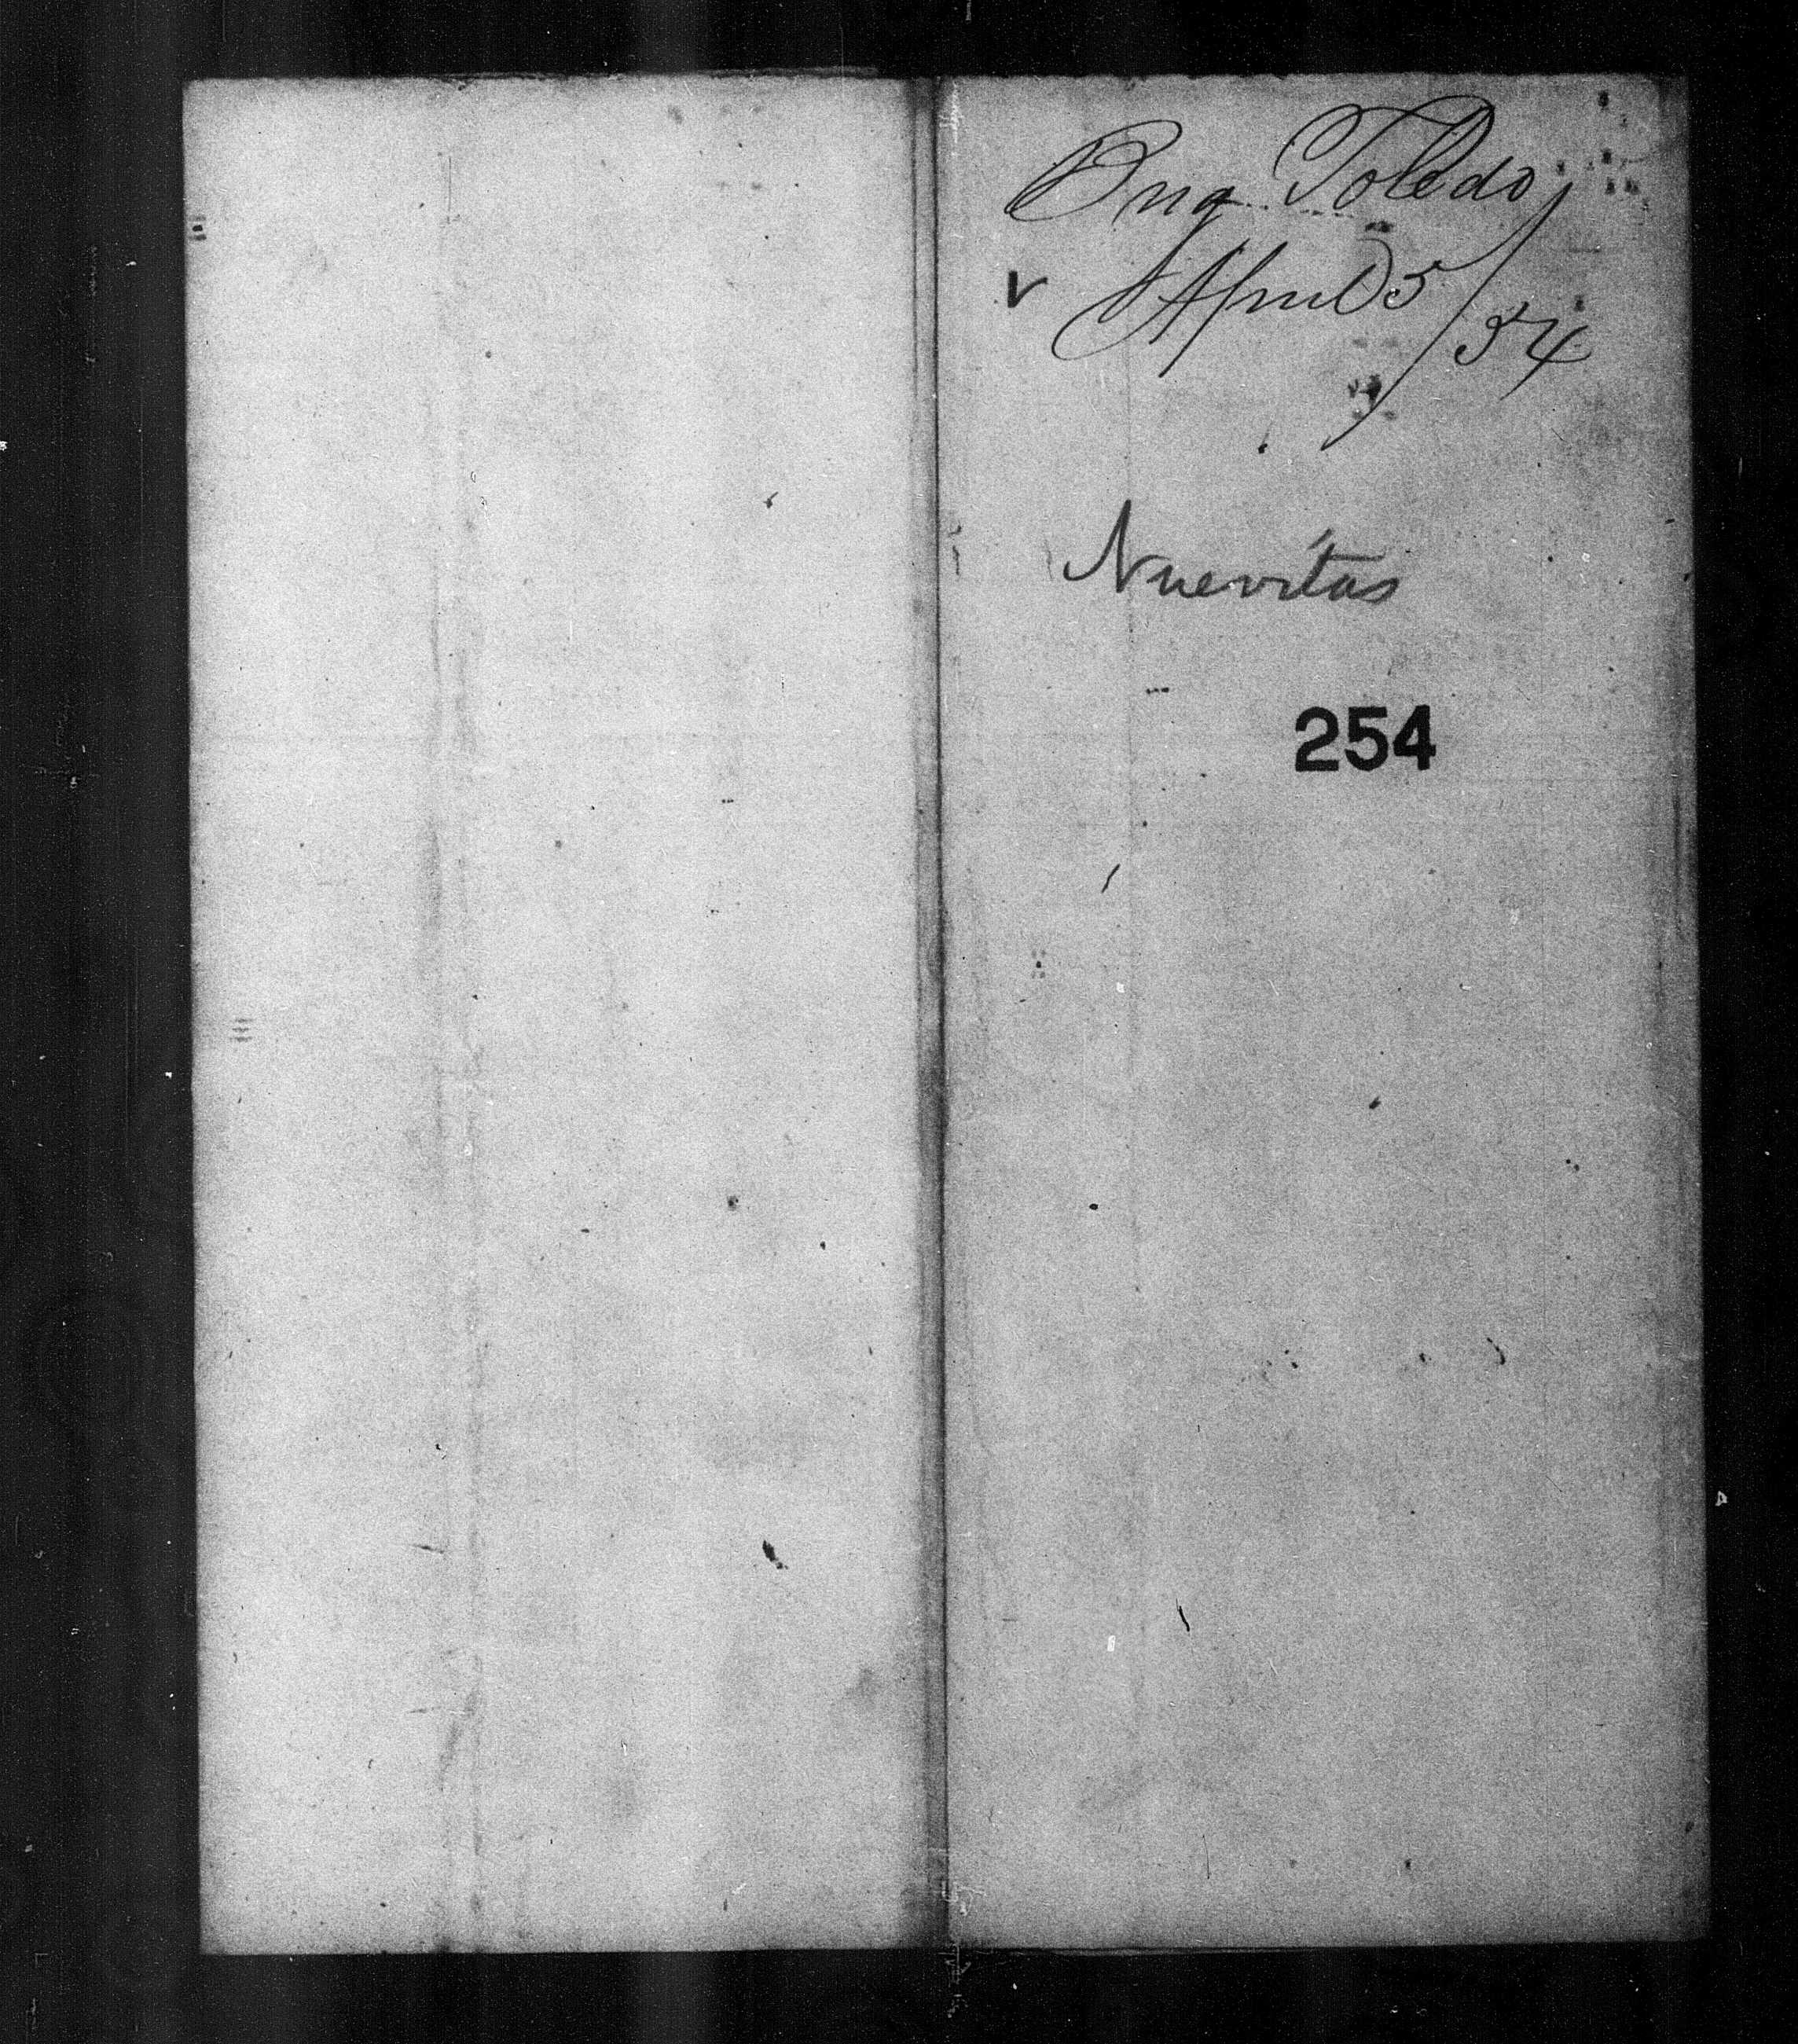 Brig Toledo
v April 5/54
Nuevitas
254